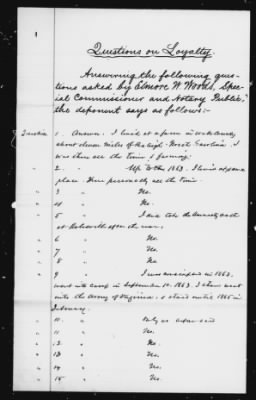 1
Questions on Loyalty.
Answering the following ques-
tions asked by Elmore W. Woods, Spe-
cial Commissioner and Notary Public,
the deponent says as follows:-
Question 1. Answer. I lived at a farm in Wake County
about eleven miles of Raleigh North Carolina. I
was there all the time & farming.
" 2. Up to the 1863. I lived at same
place. Was personally all the time.
" 3 No.
" 4 No.
" 5 I did take the amnesty oath
at Raleigh after the war.
" 6 No.
" 7 No.
" 8 No
" 9 I was conscripted in 1863,
went into camp in September 10, 1863. I then went
into the Army of Virginia, & stayed until 1865 in
February.
" 10. Only as aforesaid
" 11 No.
" 12. No.
" 13 No.
" 14 No.
" 15 No.